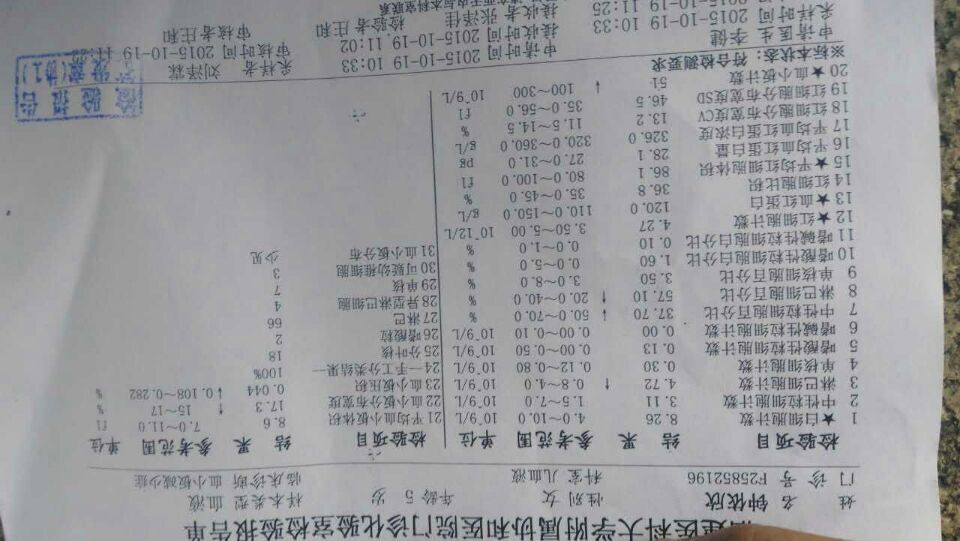 福建医科大学附属协和医院门诊化验室检验报告单
姓 名 钟依欣 性别 女 年龄 5 岁 样本类型 血液
门 诊 号 F25852196 科室 儿血液 临床诊断 血小板减少症
检验项目 结 果 参考范围 单位 检验项目 结 果 参考范围 单位
1 ★白细胞计数 8.26 4.0~10.0 10^9/L 21 平均血小板体积 8.6 7.0~11.0 fl
2 中性细胞计数 3.11 1.5~7.0 10^9/L 22 血小板分布宽度 17.3 ↑ 15~17 %
3 淋巴细胞计数 4.72 ↑ 0.8~4.0 10^9/L 23 血小板压积 0.044 ↓ 0.108~0.282 %
4 单核细胞计数 0.30 0.12~0.80 10^9/L 24 一手工分类结果一 100%
5 嗜酸性粒细胞计数 0.13 0.00~0.50 10^9/L 25 分叶核 18
6 嗜碱性粒细胞计数 0.00 0.00~0.10 10^9/L 26 嗜酸粒 2
7 中性细胞百分比 37.70 ↓ 50.0~70.0 % 27 淋巴 66
8 淋巴细胞百分比 57.10 ↑ 20.0~40.0 % 28 异型淋巴细胞 4
9 单核细胞百分比 3.50 3.0~8.0 % 29 单核 7
10 嗜酸性粒细胞白分比 1.60 0.0~5.0 % 30 可疑幼稚细胞 3
11 嗜碱性粒细胞白分比 0.10 0.0~1.0 % 31 血小板分布 少见
12 ★红细胞计数 4.27 3.50~5.00 10^12/L
13 ★血红蛋白 120.0 110.0~150.0 g/L
14 红细胞比积 36.8 35.0~45.0 %
15 ★平均红细胞体积 86.1 80.0~100.0 fl
16 平均血红蛋白量 28.1 27.0~31.0 pg
17 平均血红蛋白浓度 326.0 320.0~360.0 g/L
18 红细胞分布宽度CV 13.2 11.5~14.5 %
19 红细胞分布宽度SD 46.5 35.0~56.0 fl
20 ★血小板计数 51 ↓ 100~300 10^9/L
※标本状态: 符合检测要求
申请医生 李健 申请时间 2015-10-19 10:33 采样者 刘泽霖
采样时间 2015-10-19 10:33 接收时间 2015-10-19 11:02 审核时间 2015-10-19
接收者 张泽佳 检验者 庄和 审核者 庄和
11:25
检验报告